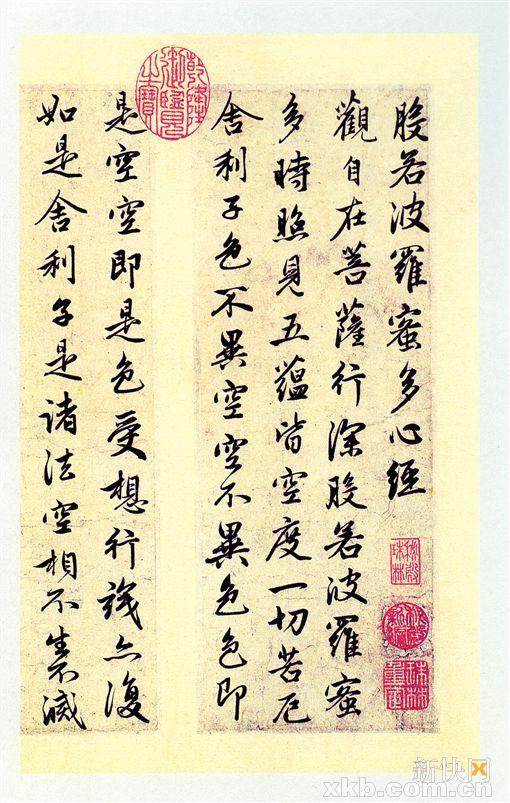 般若波羅蜜多心經
觀自在菩薩行深般若波羅蜜
多時照見五蘊皆空度一切苦厄
舍利子色不異空空不異色色即
是空空即是色受想行識亦復
如是舍利子是諸法空相不生不滅
乾隆御覽之寶
秘殿珠林
秘殿新編
珠林重定
新快网
xkb.com.cn